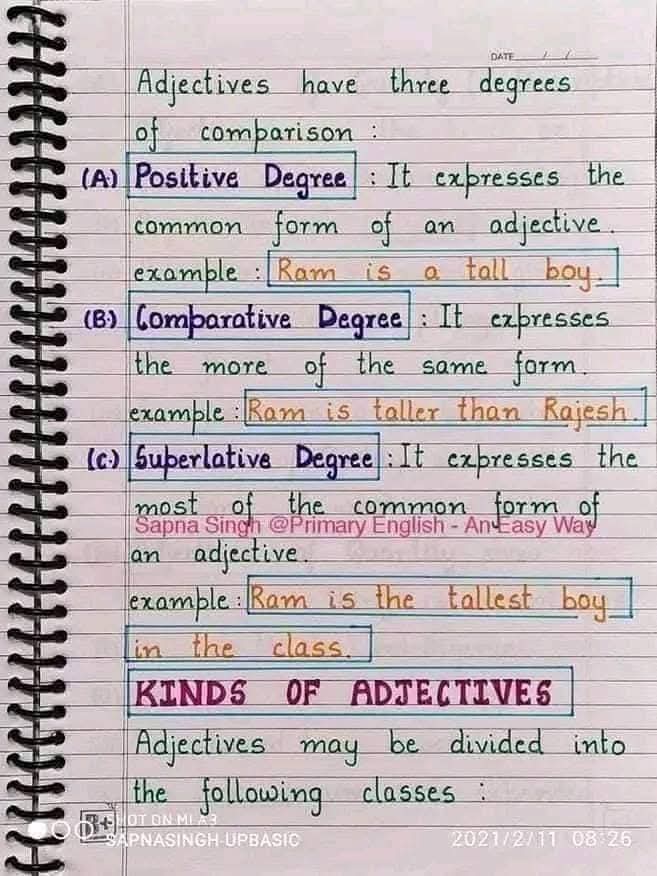 DATE / /
Adjectives have three degrees
of comparison :
(A.) Positive Degree : It expresses the
common form of an adjective.
example : Ram is a tall boy.
(B.) Comparative Degree : It expresses
the more of the same form.
example : Ram is taller than Rajesh.
(C.) Superlative Degree : It expresses the
most of the common form of
Sapna Singh @Primary English - An Easy Way
an adjective.
example : Ram is the tallest boy
in the class.
KINDS OF ADJECTIVES
Adjectives may be divided into
the following classes :
SHOT ON MI A3
SAPNASINGH-UPBASIC
2021/2/11 08:26